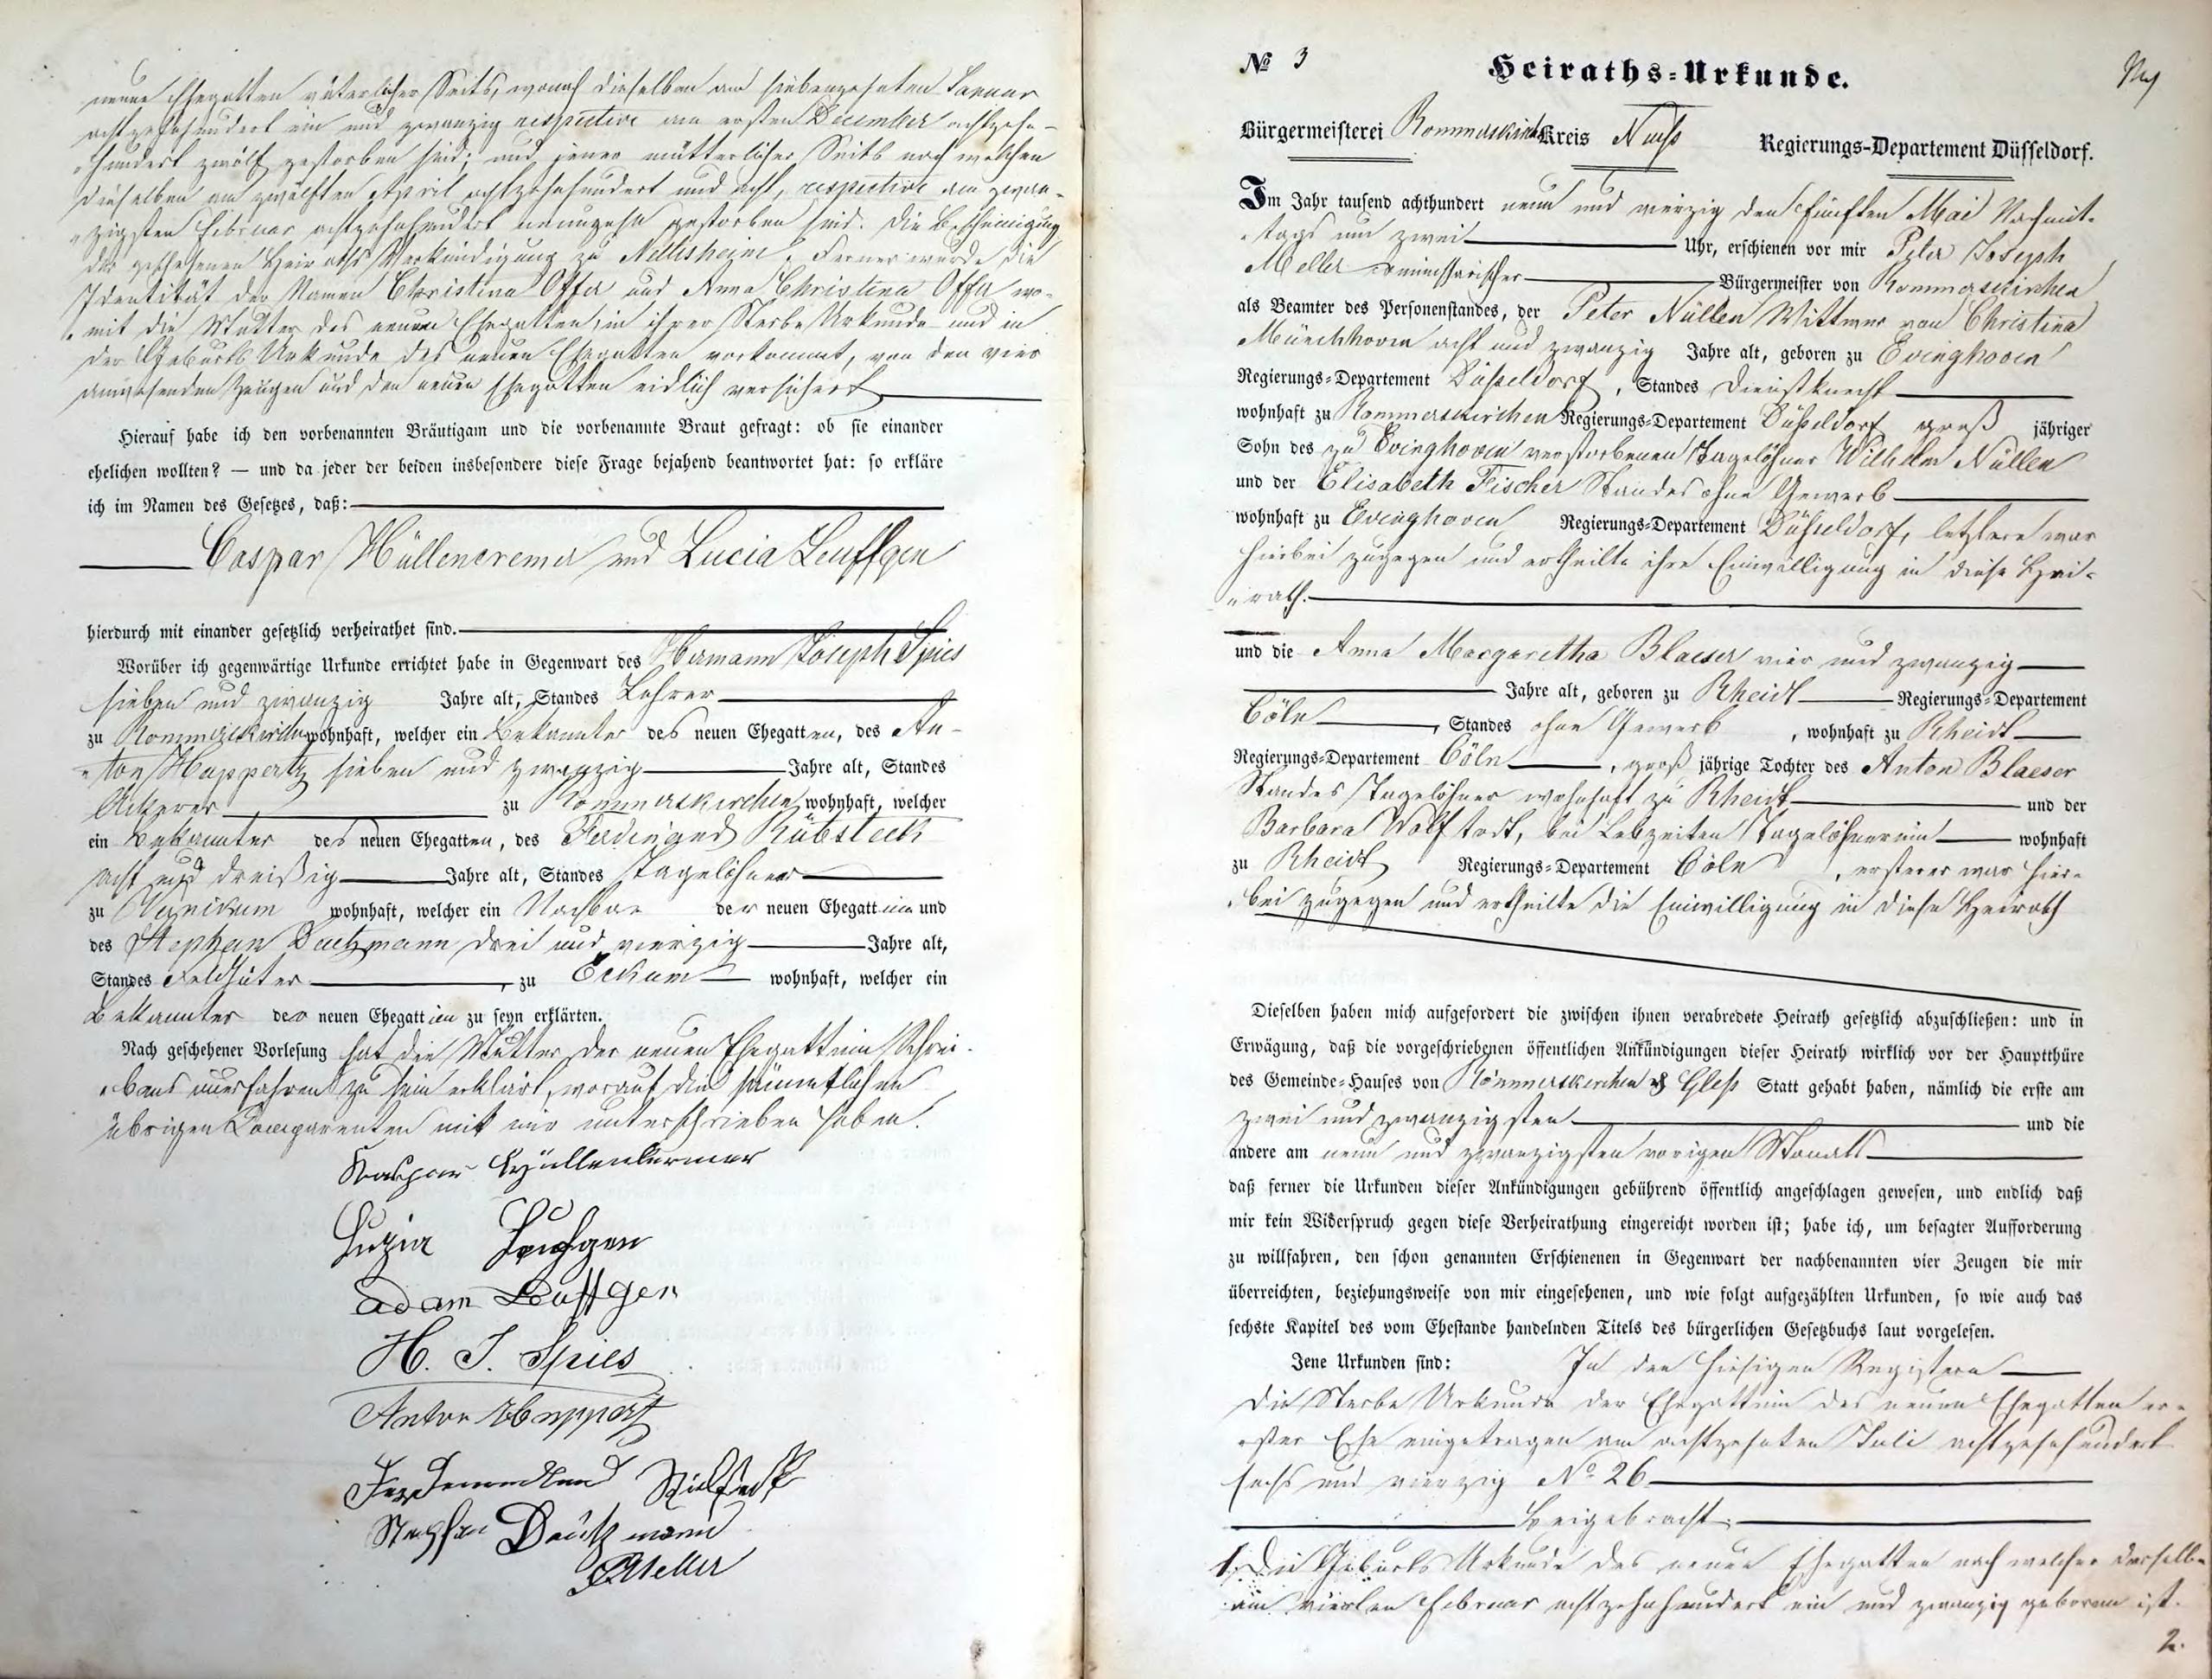 neuen Ehegatten väterlicher Seits, wonach dieselben am siebenzehnten Januar
achtzehnhundert ein und zwanzig respective am ersten December achtzehn-
hundert zwölf gestorben sind; und jener mütterlicher Seits nach welchen
dieselben am zwölften April achtzehnhundert und acht, respective am zwan-
zigsten Februar achtzehnhundert neunzehn gestorben sind. Die Bescheinigung
der geschehenen Heiraths Verkündigung zu Nettesheim. Ferner wurde die
Identität der Namen Christina Offer und Anna Christina Offer wo-
mit die Mutter des neuen Ehegatten, in ihrer Sterbe Urkunde und in
der Geburts Urkunde des neuen Ehegatten vorkommt, von den vier
anwesenden Zeugen und den neuen Ehegatten eidlich versichert
Hierauf habe ich den vorbenannten Bräutigam und die vorbenannte Braut gefragt: ob sie einander
ehelichen wollten? — und da jeder der beiden insbesondere diese Frage bejahend beantwortet hat: so erkläre
ich im Namen des Gesetzes, daß:
Caspar Hüllencremer und Lucia Leuffgen
hierdurch mit einander gesetzlich verheirathet sind.
Worüber ich gegenwärtige Urkunde errichtet habe in Gegenwart des Hermann Joseph Spies
sieben und zwanzig Jahre alt, Standes Lehrer
zu Rommerskirchen wohnhaft, welcher ein Bekannter des neuen Ehegatten, des An-
ton Huppertz sieben und zwanzig Jahre alt, Standes
Ackerer zu Rommerskirchen wohnhaft, welcher
ein Bekannter des neuen Ehegatten, des Ferdinand Rübsteck
acht und dreißig Jahre alt, Standes Tagelöhner
zu wohnhaft, welcher ein Nachbar der neuen Ehegattin und
des Stephan Deutzmann drei und vierzig Jahre alt,
Standes Feldhüter, zu Eckum wohnhaft, welcher ein
Bekannter der neuen Ehegattin zu seyn erklärten.
Nach geschehener Vorlesung hat die Mutter der neuen Ehegattin Schrei-
bens unerfahren zu sein erklärt, worauf die sämmtlichen
übrigen Comparenten mit mir unterschrieben haben.
Kaspar Hüllenkremer
Luzia Leufgen
Adam Leuffgen
H. J. Spies
Anton Huppertz
Ferdinand Rübsteck
Stephan Deutzmann
Meller
№ 3
Heiraths-Urkunde.
Bürgermeisterei Rommerskirchen Kreis Neuß Regierungs-Departement Düsseldorf.
Im Jahr tausend achthundert neun und vierzig den fünften Mai Nachmit-
tags um zwei Uhr, erschienen vor mir Peter Joseph
Meller commissarischer Bürgermeister von Rommerskirchen
als Beamter des Personenstandes, der Peter Nüllen Wittwer von Christina
Münchhoven acht und zwanzig Jahre alt, geboren zu Evinghoven
Regierungs-Departement Düsseldorf, Standes Dienstknecht
wohnhaft zu Rommerskirchen Regierungs-Departement Düsseldorf groß jähriger
Sohn des zu Evinghoven verstorbenen Tagelöhner Wilhelm Nüllen
und der Elisabeth Fischer Standes ohne Gewerb
wohnhaft zu Evinghoven Regierungs-Departement Düsseldorf, letztere war
hierbei zugegen und ertheilte ihre Einwilligung in diese Hei-
rath.
und die Anna Margaretha Blaeser vier und zwanzig
Jahre alt, geboren zu Rheidt Regierungs-Departement
Cöln, Standes ohne Gewerb, wohnhaft zu Rheidt
Regierungs-Departement Cöln, groß jährige Tochter des Anton Blaeser
Standes Tagelöhner wohnhaft zu Rheidt und der
Barbara Wolf todt, bei Lebzeiten Tagelöhnerin wohnhaft
zu Rheidt Regierungs-Departement Cöln, ersterer war hier-
bei zugegen und ertheilte die Einwilligung in diese Heirath
Dieselben haben mich aufgefordert die zwischen ihnen verabredete Heirath gesetzlich abzuschließen: und in
Erwägung, daß die vorgeschriebenen öffentlichen Ankündigungen dieser Heirath wirklich vor der Hauptthüre
des Gemeinde-Hauses von Rommerskirchen & Gleß Statt gehabt haben, nämlich die erste am
zwei und zwanzigsten und die
andere am neun und zwanzigsten vorigen Monats
daß ferner die Urkunden dieser Ankündigungen gebührend öffentlich angeschlagen gewesen, und endlich daß
mir kein Widerspruch gegen diese Verheirathung eingereicht worden ist; habe ich, um besagter Aufforderung
zu willfahren, den schon genannten Erschienenen in Gegenwart der nachbenannten vier Zeugen die mir
überreichten, beziehungsweise von mir eingesehenen, und wie folgt aufgezählten Urkunden, so wie auch das
sechste Kapitel des vom Ehestande handelnden Titels des bürgerlichen Gesetzbuchs laut vorgelesen.
Jene Urkunden sind: In den hiesigen Registern
die Sterbe Urkunde der Ehegattin des neuen Ehegatten er-
ster Ehe eingetragen am achtzehnten Juli achtzehnhundert
sechs und vierzig No 26
Beigebracht:
1, Die Geburts Urkunde des neuen Ehegatten nach welcher derselbe
am vierten Februar achtzehnhundert ein und zwanzig geboren ist.
2.